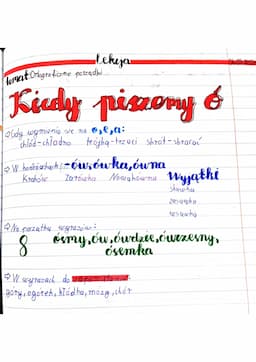 Lekcja
Temat: Ortograficzne porządki
Kiedy piszemy ó
Gdy wymienia się na o, e, a:
chłód-chłodno trójka-troje skrót-skracać
W końcówkach: -ów, ówka, ówna
Kraków żarówka Nowakówna Wyjątki
skuwka
zasuwka
Na początku wyrazów:
8 ósmy, ów, ówdzie, ówczesny,
ósemka
W wyrazach do
góry, ogórek, kłódka, mózg, chór